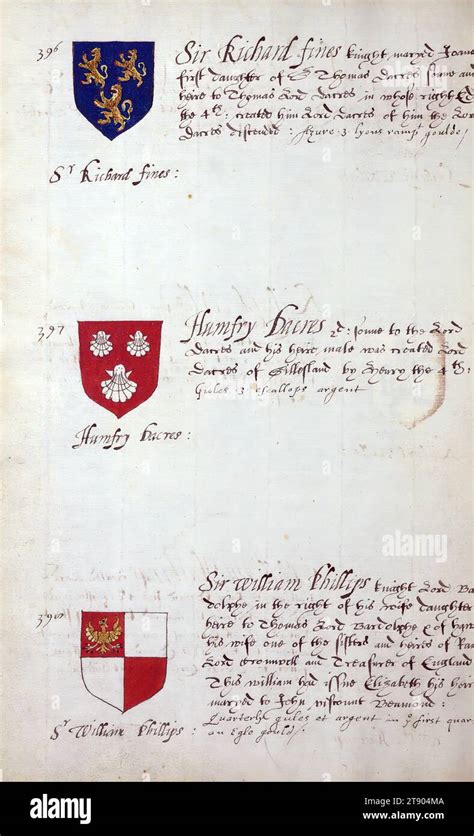 396
Sir Richard fines knight maryed Joane
first daughter of Sr Thomas Dacres sonne and
heire to Thomas Lord Dacres in whose right Ed
the 4th: created him Lord Dacres of him the Lor
Dacres discended: Azure 3 lyons ramp: goulde:
Sr Richard fines:
397
Humfry Dacres 2d: sonne to the Lord
Dacres and his heire male was created Lord
Dacres of Gillesland by Henry the 4th:
Gules 3 escallops argent
Humfry Dacres:
398
Sir William Phillips knight Lord Bar
dolphe in the right of his wife daughter
heire to Thomas Lord Bardolphe &
his wife one of the sisters and heires of Ra
Lord Cromwell and Treasurer of England
This William had issue Elizabeth his heire
marred to John viscount Beamond:
Quarterly gules et argent in ye first quar
an Egle goulde:
Sr William Phillips:
alamy
Image ID: 2T904MA
www.alamy.com